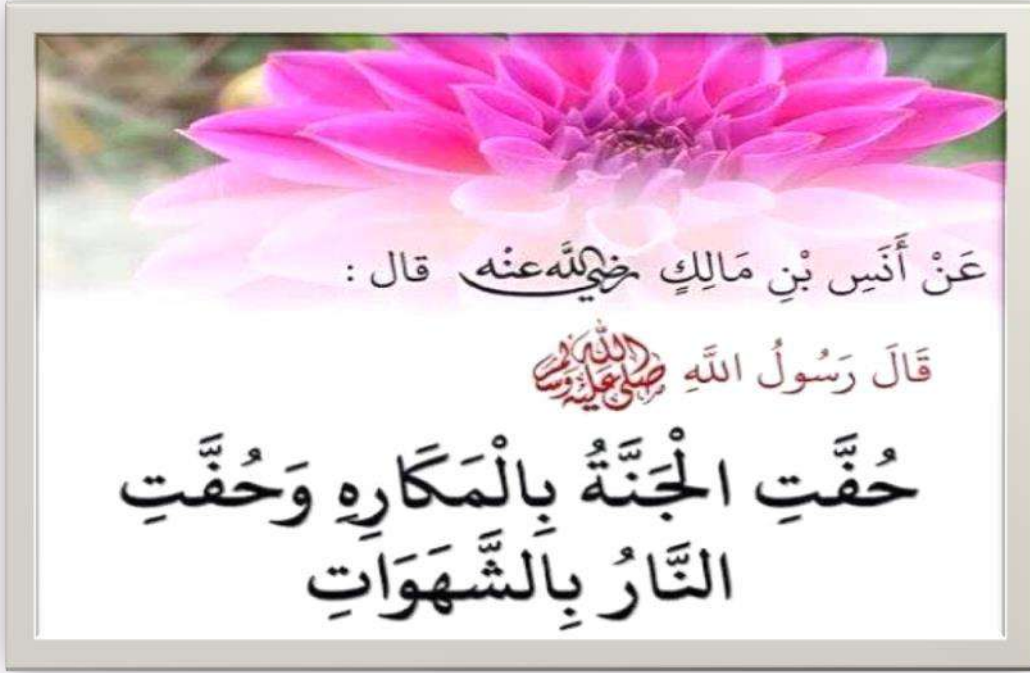 عَنْ أَنَسِ بْنِ مَالِكٍ رضي الله عنه قال :
قَالَ رَسُولُ اللَّهِ صلى الله عليه وسلم
حُفَّتِ الْجَنَّةُ بِالْمَكَارِهِ وَحُفَّتِ
النَّارُ بِالشَّهَوَاتِ